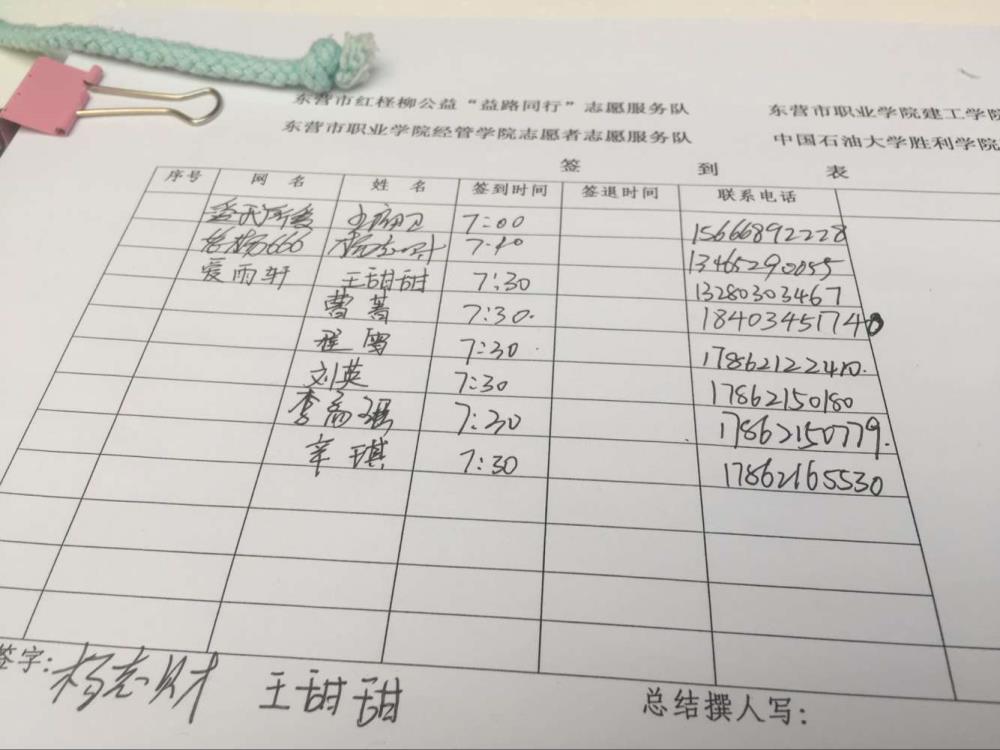 东营市红柽柳公益“益路同行”志愿服务队 东营市职业学院建工学院
东营市职业学院经管学院志愿者志愿服务队 中国石油大学胜利学院
签 到 表
序号 网 名 姓 名 签到时间 签退时间 联系电话
7:00 15666892228
666 7:10 13465290055
爱雨轩 王甜甜 7:30 13280303467
曹菁 7:30. 18403451740
程雪 7:30 17862122410.
刘英 7:30 17862150180
李 强 7:30 17862150779.
辛琪 7:30 17862165530
签字: 杨志财 王甜甜 总结撰人写: